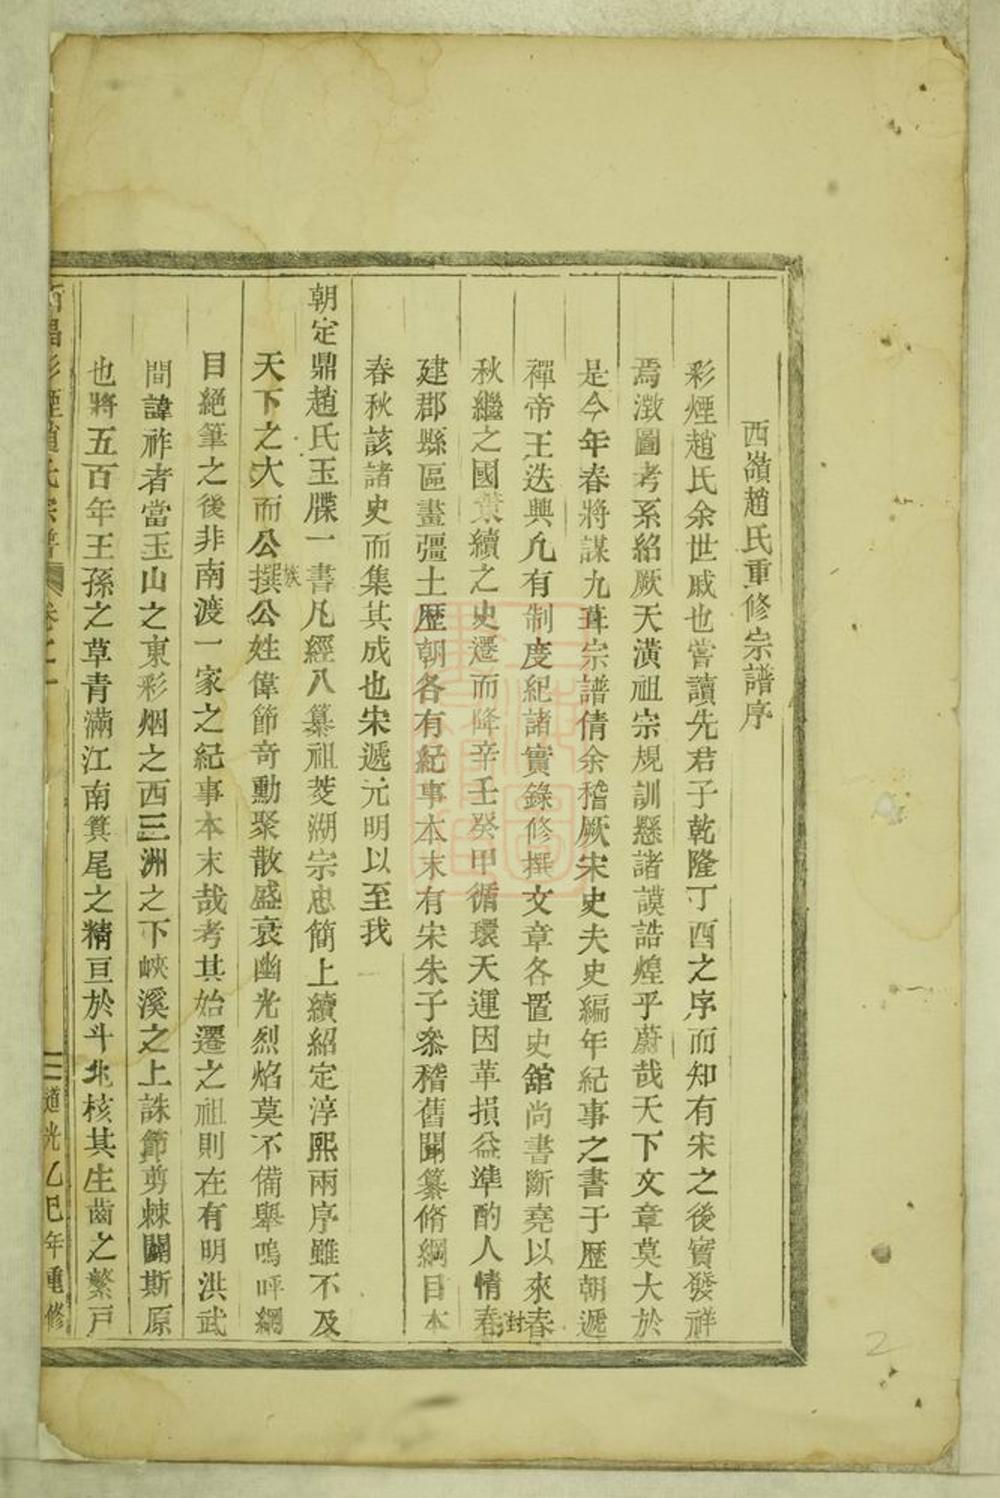 西嶺趙氏重修宗譜序
彩煙趙氏余世戚也嘗讀先君子乾隆丁酉之序而知有宋之後實發祥
焉溦圖考系紹厥天潢祖宗規訓懸諸謨誥煌乎蔚哉天下文章莫大於
是今年春將謀九葺宗譜倩余稽厥宋史夫史編年紀事之書于歷朝遞
禪帝王迭興凢有制度紀諸實錄修撰文章各置史舘尚書斷堯以來春
秋繼之國業續之史遷而降辛壬癸甲循環天運因革損益準酌人情春
封
建郡縣區畫彊土歷朝各有紀事本末有宋朱子叅稽舊聞纂脩綱目本
春秋該諸史而集其成也宋遞元明以至我
朝定鼎趙氏玉牒一書凡經八纂祖茭湖宗忠簡上續紹定淳熙兩序雖不及
天下之大而公撰公姓偉節竒勳聚散盛衰幽光烈焰莫不備舉嗚呼綱
族
目絕筆之後非南渡一家之紀事本末哉考其始遷之祖則在有明洪武
間諱祚者當玉山之東彩烟之西三洲之下峽溪之上誅節剪棘闢斯原
也將五百年王孫之草青滿江南箕尾之精亘於斗北核其生齒之繁戸
昌彩煙趙氏宗譜 卷之一 道光乙巳年重修
2